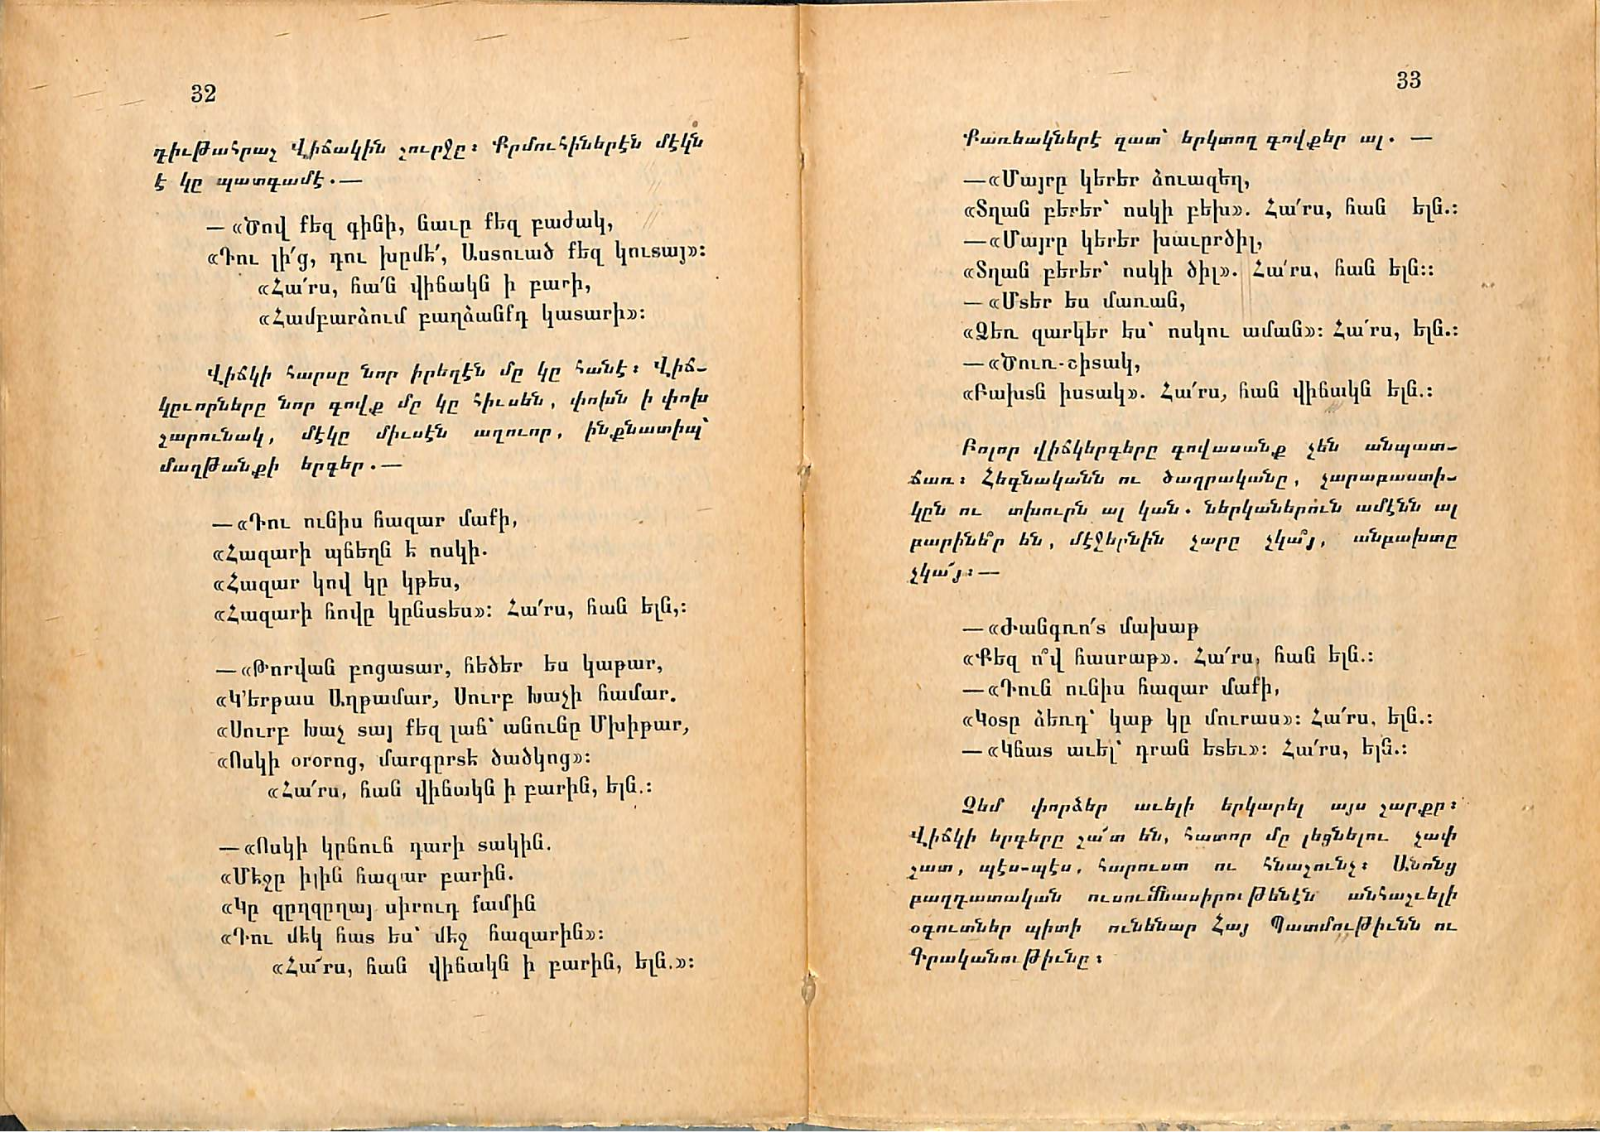 32
դիւթահրաչ Վիճակին շուրջը։ Քրմուհիներէն մէկն
է կը պատգամէ.—
— «Ծով քեզ գինի, նաւը քեզ բաժակ,
«Դու լի՛ց, դու խըմե՛, Աստուած քեզ կուտայ»։
«Հա՛րս, հա՛ն վիճակն ի բարի,
«Համբարձում բաղձանքդ կատարի»։
Վիճկի հարսը նոր իրեղէն մը կը հանէ։ Վիճ-
կըւորները նոր գովք մը կը հիւսեն, փոխն ի փոխ
շարունակ, մէկը միւսէն աղուոր, ինքնատիպ՝
մաղթանքի երգեր.—
—«Դու ունիս հազար մաքի,
«Հազարի պճեղն է ոսկի.
«Հազար կով կը կթես,
«Հազարի հովը կընստես»։ Հա՛րս, հան ելն,։
—«Թորվան բոցատար, հեծեր ես կաթար,
«Կ՚երթաս Աղթամար, Սուրբ Խաչի համար.
«Սուրբ Խաչ տայ քեզ լաճ՝ անունը Մխիթար,
«Ոսկի օրօրոց, մարգըրտե ծածկոց»։
«Հա՛րս, հան վիճակն ի բարին, ելն.։
—«Ոսկի կրճուն դարի տակին.
«Մէջը իլին հազար բարին.
«Կը զըղզըղայ սիրուդ քամին
«Դու մեկ հատ ես՝ մեջ հազարին»։
«Հա՛րս, հան վիճակն ի բարին, ելն.»։
33
Բառեակներէ զատ՝ երկտող գովքեր ալ. —
—«Մայրը կերեր ձուազեղ,
«Տղան բերեր՝ ոսկի բեխ». Հա՛րս, հան ելն.։
—«Մայրը կերեր խաւըրծիլ,
«Տղան բերեր՝ ոսկի ծիլ». Հա՛րս, հան ելն։։
—«Մտեր ես մառան,
«Ձեռ զարկեր ես՝ ոսկու աման»։ Հա՛րս, ելն.։
—«Ծուռ-շիտակ,
«Բախտն իստակ». Հա՛րս, հան վիճակն ելն.։
Բոլոր վիճկերգերը գովասանք չեն անպատ-
ճառ։ Հեգնականն ու ծաղրականը, չարաբաստի-
կըն ու տխուրն ալ կան. ներկաներուն ամէնն ալ
բարինե՞ր են, մէջելնին չարը չկա՞յ, անբախտը
չկա՞յ։—
—«Ժանգռո՛տ մախաթ
«Քեզ ո՞վ հասրաթ». Հա՛րս, հան ելն.։
—«Դուն ունիս հազար մաքի,
«Կօտը ձեռդ՝ կաթ կը մուրաս»։ Հա՛րս, ելն.։
—«Կճատ աւել՝ դրան ետեւ»։ Հա՛րս, ելն.։
Չեմ փորձեր աւելի երկարել այս շարքը։
Վիճկի երգերը շա՛տ են, հատոր մը լեցնելու չափ
շատ, պէս-պէս, հարուստ ու հնաշունչ։ Անոնց
բաղդատական ուսումնասիրութենէն անհաշւելի
օգուտներ պիտի ունենար Հայ Պատմութիւնն ու
Գրականութիւնը։